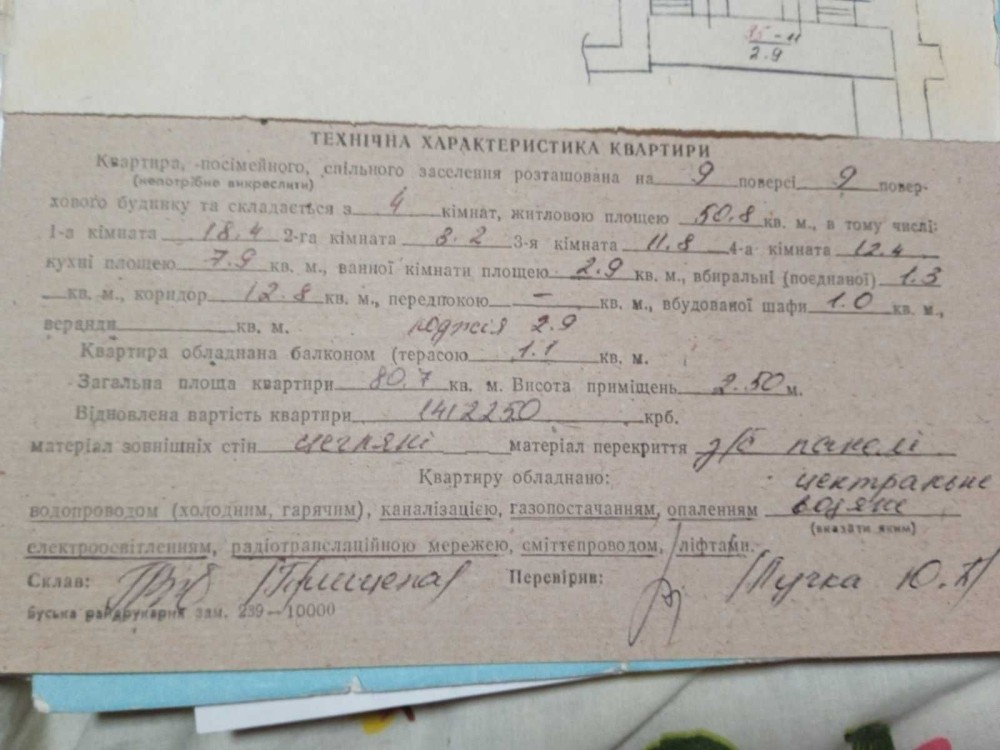 35-11
2.9
ТЕХНІЧНА ХАРАКТЕРИСТИКА КВАРТИРИ
Квартира, посімейного, спільного заселення розташована на 9 поверсі 9 повер-
(непотрібне викреслити)
хового будинку та складається з 4 кімнат, житловою площею 50.8 кв. м., в тому числі:
1-а кімната 18.4 2-га кімната 8.2 3-я кімната 11.8 4-а кімната 12.4
кухні площею 7.9 кв. м., ванної кімнати площею 2.9 кв. м., вбиральні (поєднаної) 1.3
кв. м., коридор 12.8 кв. м., передпокою — кв. м., вбудованої шафи 1.0 кв. м.,
веранди кв. м. лоджія 2.9
Квартира обладнана балконом (терасою 1.1 кв. м.
Загальна площа квартири 80.7 кв. м. Висота приміщень 2.50 м.
Відновлена вартість квартири 1412250 крб.
матеріал зовнішніх стін цегляні матеріал перекриття з/б панелі
Квартиру обладнано: центральне
водопроводом (холодним, гарячим), каналізацією, газопостачанням, опаленням водяне
(вказати яким)
електроосвітленням, радіотрансляційною мережею, сміттєпроводом, ліфтами.
Склав: Перевірив: /Лучка Ю.
Буська райдрукарня зам. 239—10000